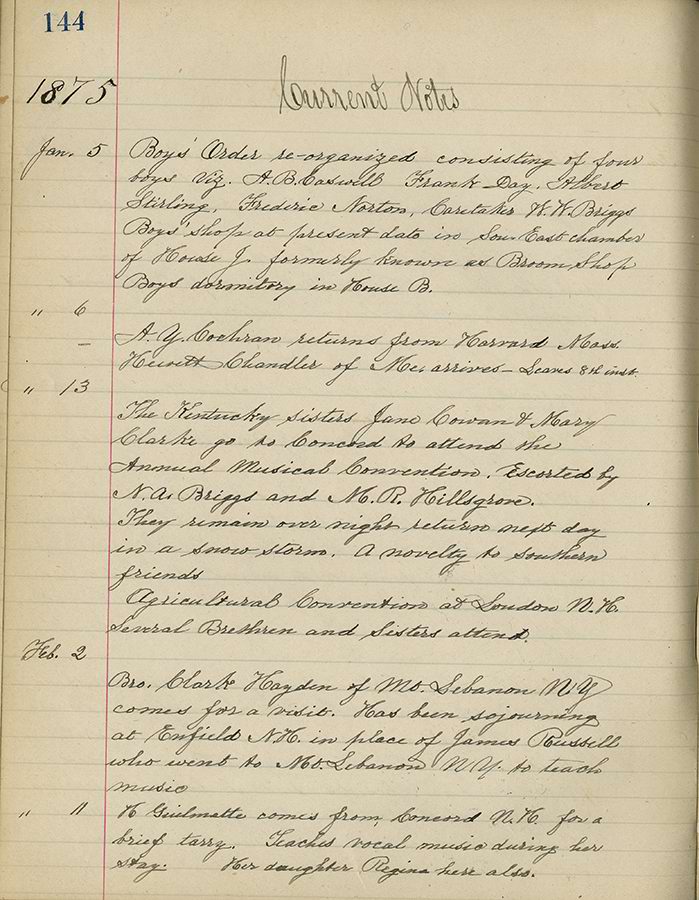 144
1875 Current Notes
Jan. 5 Boys' Order re-organized consisting of four
boys Viz. A.B. Caswell Frank Day. Albert
Stirling, Frederic Norton, Caretaker N.W. Briggs
Boys' shop at present date in Sou. East chamber
of House J. formerly known as Broom Shop
Boys dormitory in House B.
" 6
A. Y. Cochran returns from Harvard Mass.
– Hewitt Chandler of Me. arrives – Leaves 8th inst.
" 13
The Kentucky sisters Jane Cowan & Mary
Clarke go to Concord to attend the
Annual Musical Convention. Escorted by
N.A. Briggs and M.R. Hillsgrove.
They remain over night return next day
in a snow storm. A novelty to southern
friends
Agricultural Convention at Loudon N.H.
Several Brethren and Sisters attend.
Feb. 2
Bro. Clark Hayden of Mt. Lebanon N.Y
comes for a visit. Has been sojourning
at Enfield N.H. in place of James Russell
who went to Mt. Lebanon N Y. to teach
music
" 11 H Guilmette comes from Concord N.H. for a
brief tarry. Teaches vocal music during her
stay. Her daughter Regina here also.